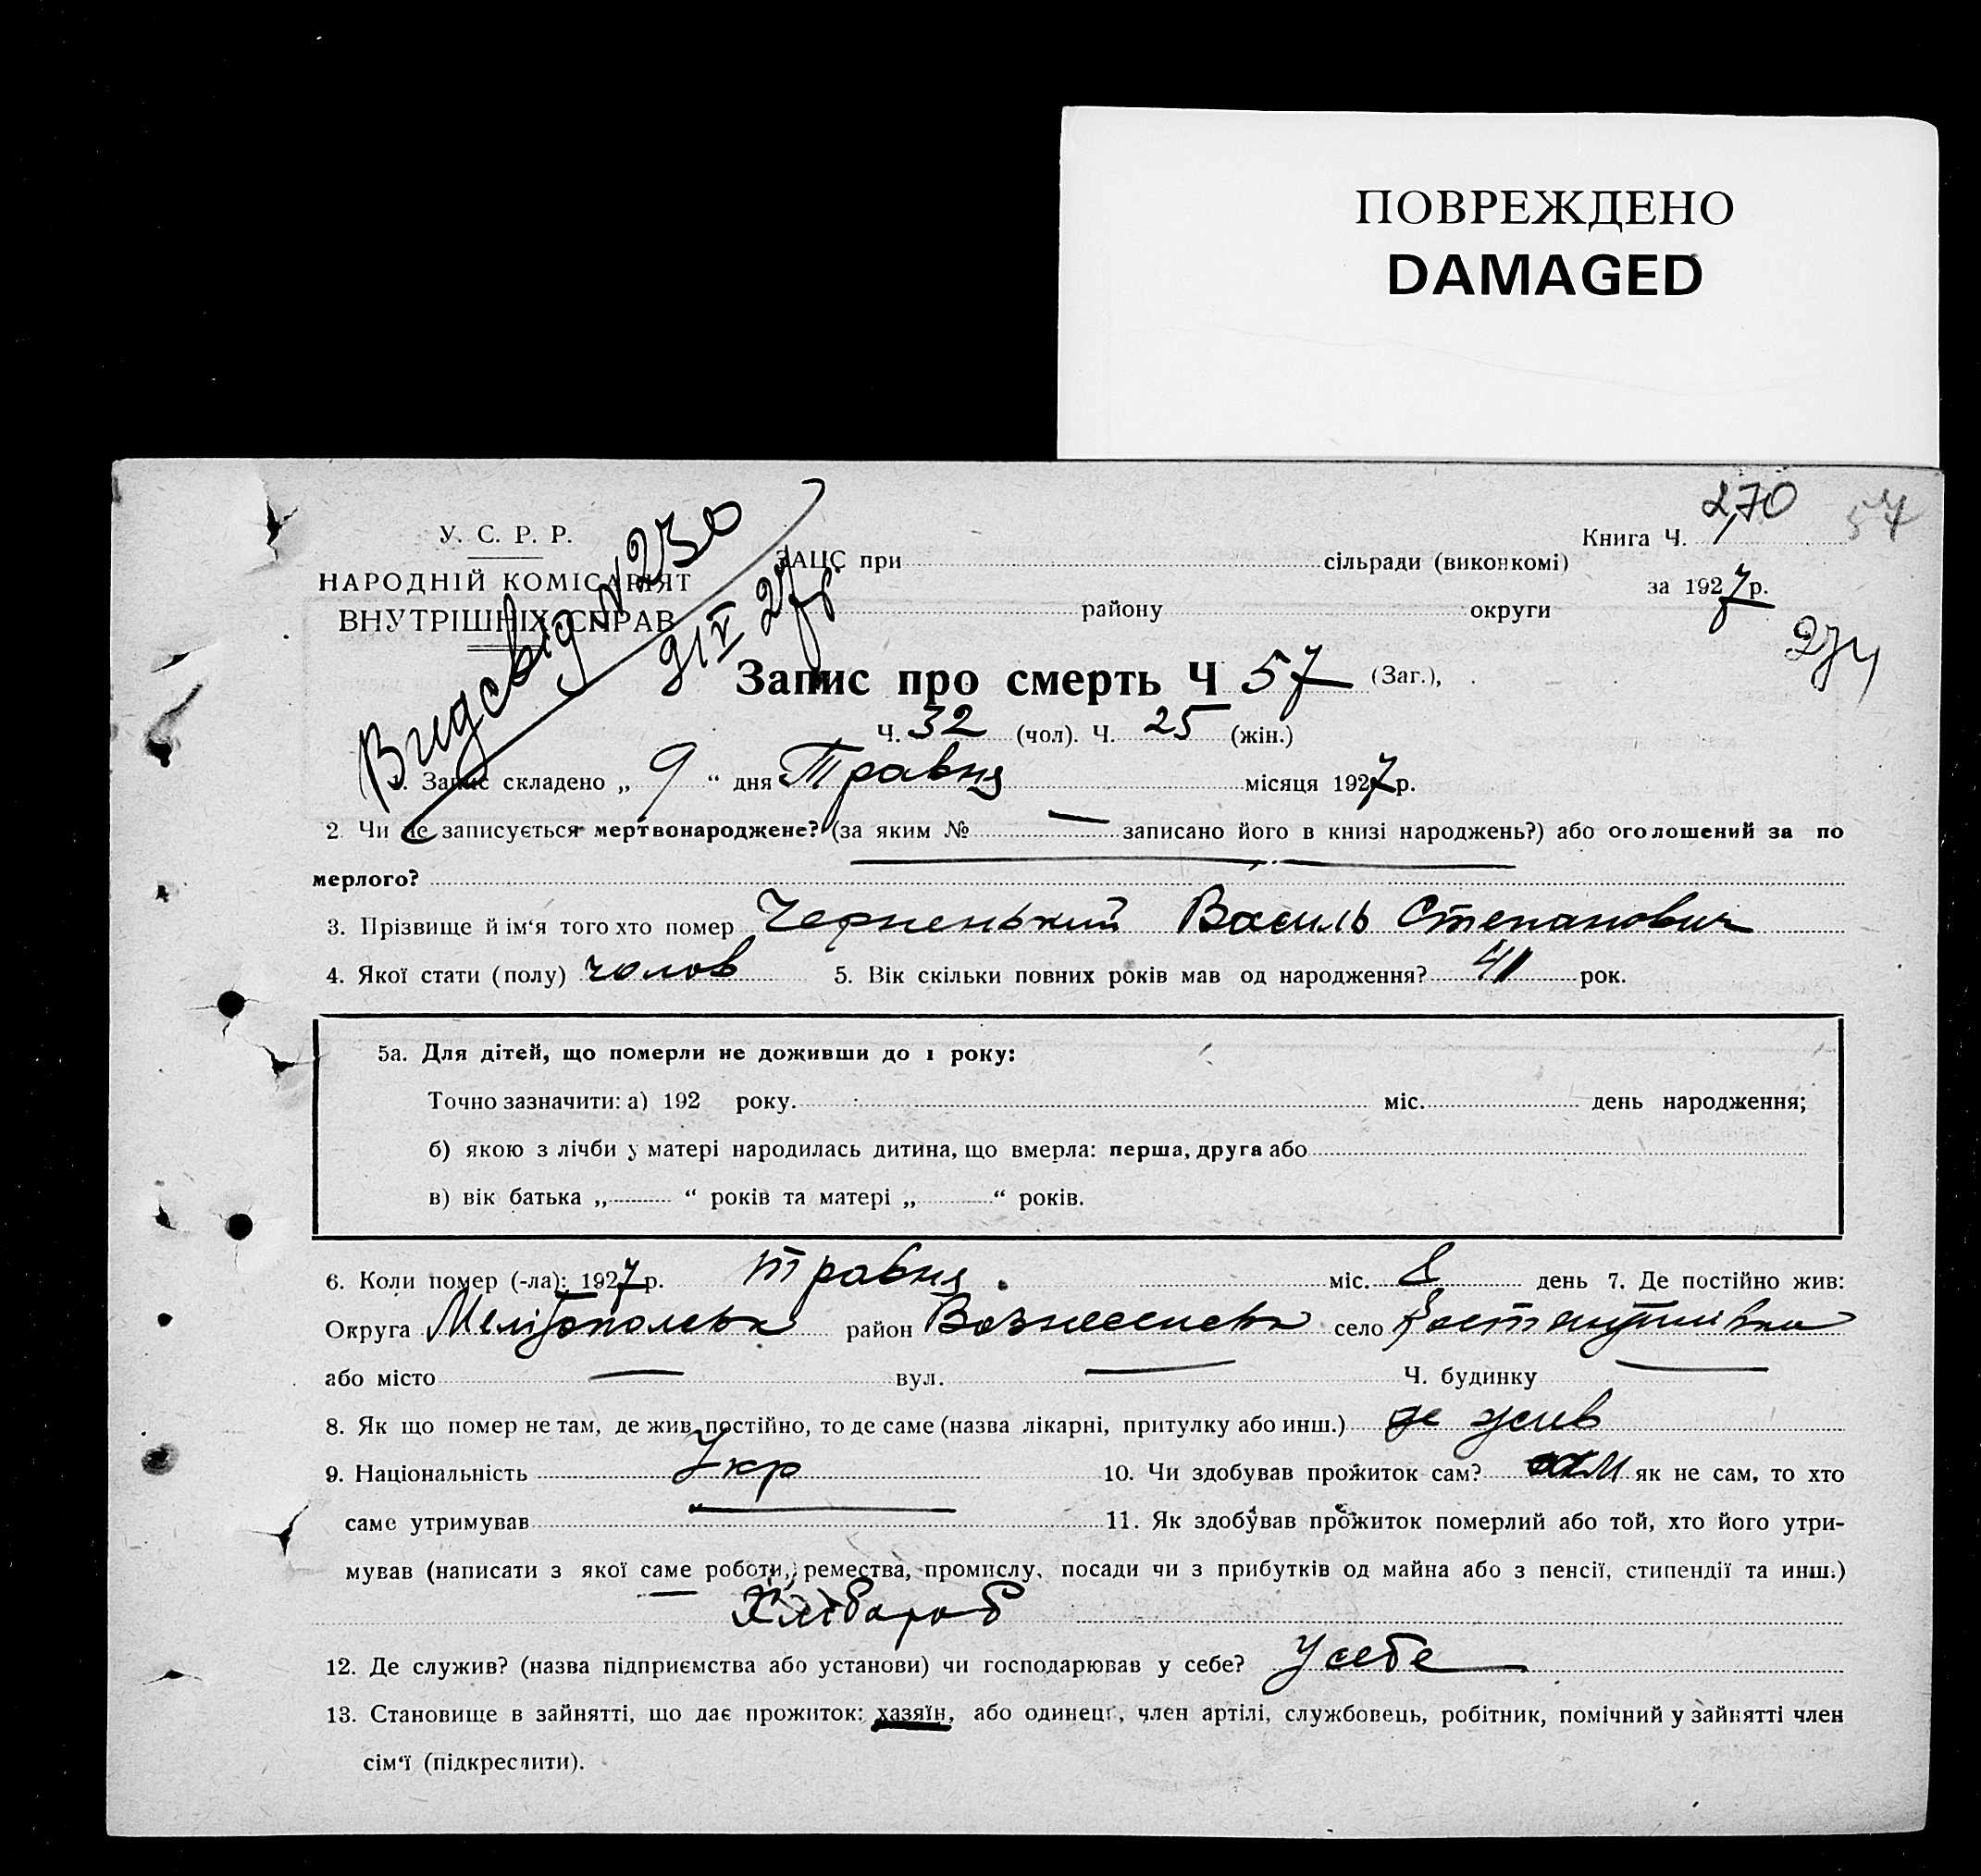 ПОВРЕЖДЕНО
DAMAGED
270 54
У. С. Р. Р.
Книга Ч.
ЗАЦС при сільради (виконкомі)
НАРОДНІЙ КОМІСАРІЯТ
за 1927 р.
ВНУТРІШНІХ СПРАВ
району округи
274
Видсвід N 230
9/V 27р.
Запис про смерть Ч 57 (Заг.),
Ч. 32 (чол). Ч. 25 (жін.)
1. Запис складено „ 9 “ дня Травня місяця 1927 р.
2 Чи не записується мертвонароджене? (за яким № — записано його в книзі народжень?) або оголошений за по
мерлого?
3. Прізвище й ім‘я того хто помер Черненький Василь Степанович
4. Якої стати (полу) чолов 5. Вік скільки повних років мав од народження? 41 рок.
5а. Для дітей, що померли не доживши до 1 року:
Точно зазначити: а) 192 року. міс. день народження;
б) якою з лічби у матері народилась дитина, що вмерла: перша, друга або
в) вік батька „ “ років та матері „ “ років.
6. Коли помер (-ла): 1927 р. травня міс. 8 день 7. Де постійно жив:
Округа Мелітопольск район Вознесенськ село
або місто — вул. — Ч. будинку —
8. Як що помер не там, де жив постійно, то де саме (назва лікарні, притулку або инш.) де жив
9. Національність Укр 10. Чи здобував прожиток сам? сам як не сам, то хто
саме утримував — 11. Як здобував прожиток померлий або той, хто його утри-
мував (написати з якої саме роботи, ремества, промислу, посади чи з прибутків од майна або з пенсії, стипендії та инш.)
Хлібороб
12. Де служив? (назва підприємства або установи) чи господарював у себе? У себе
13. Становище в зайнятті, що дає прожиток: хазяїн, або одинець, член артілі, службовець, робітник, помічний у зайнятті член
сім‘ї (підкреслити).